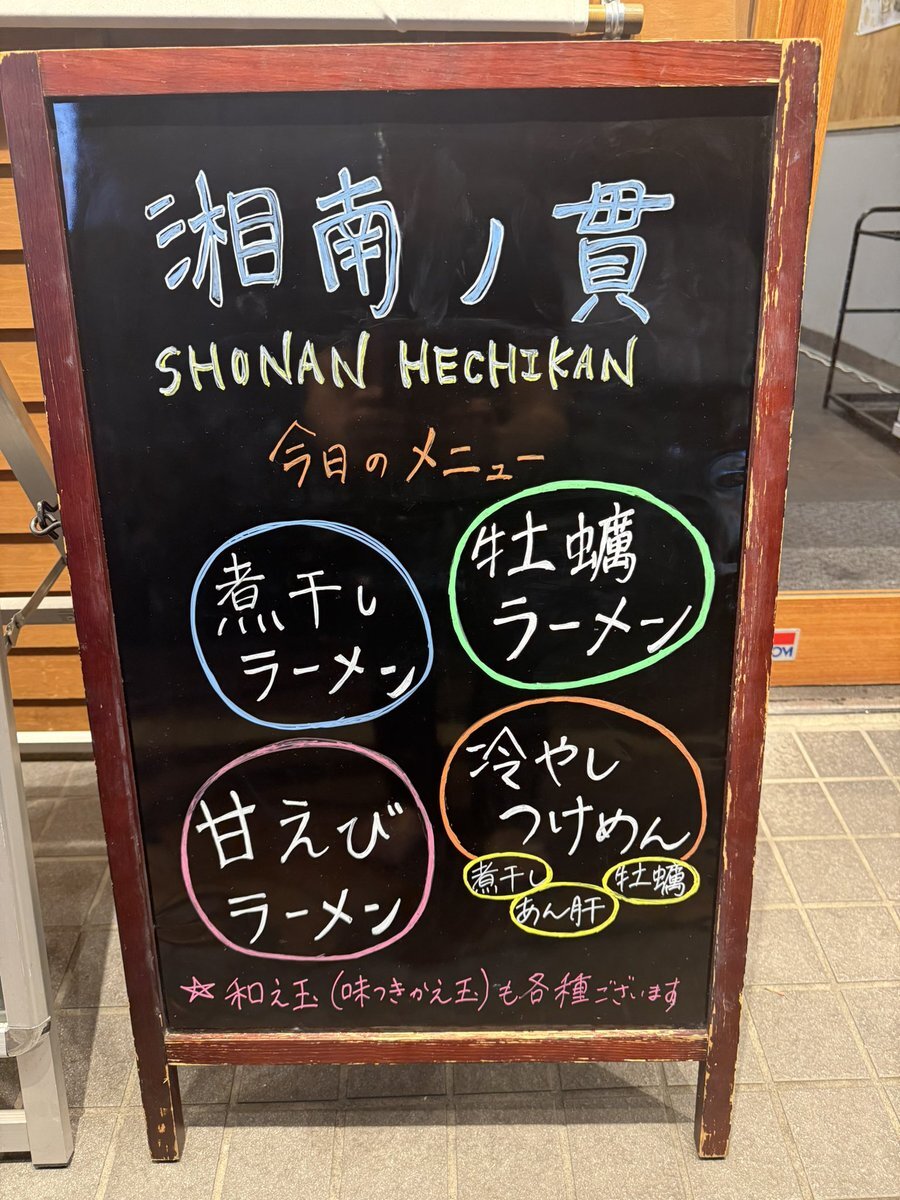 湘南ノ貫
SHONAN HECHIKAN
今日のメニュー
煮干し
ラーメン
牡蠣
ラーメン
甘えび
ラーメン
冷やし
つけめん
煮干し
牡蠣
あん肝
☆和え玉(味つきかえ玉)も各種ございます